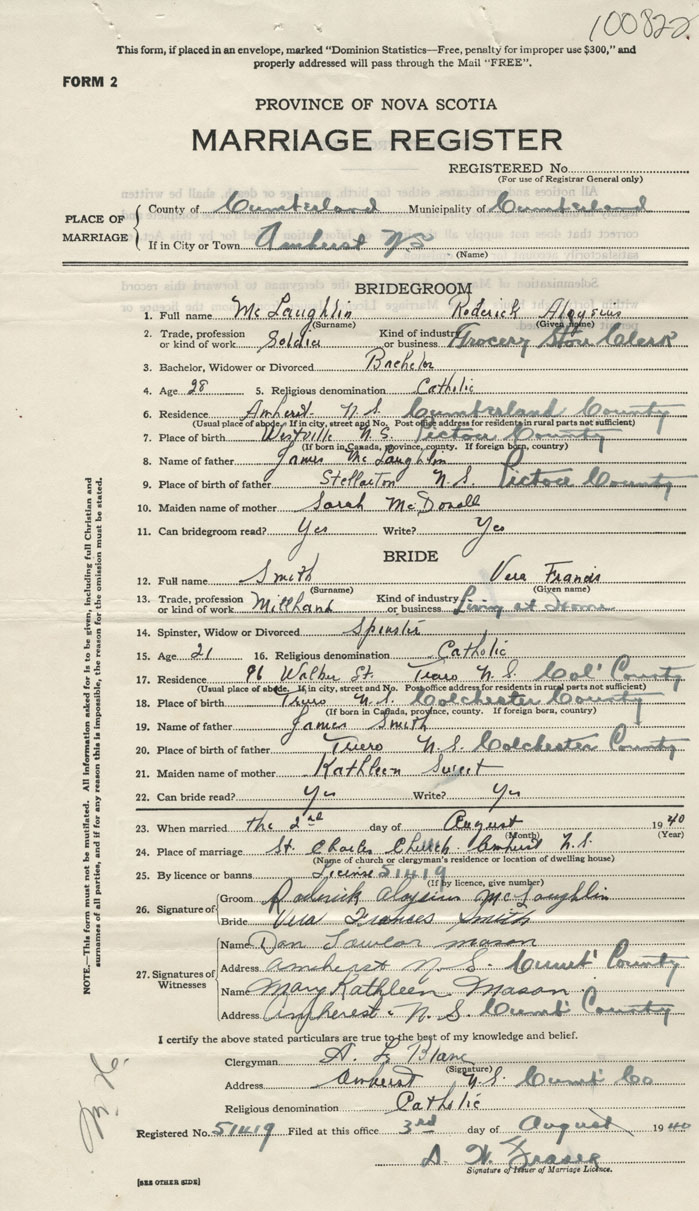 100822
This form, if placed in an envelope, marked "Dominion Statistics—Free, penalty for improper use $300," and
properly addressed will pass through the Mail "FREE".
FORM 2
PROVINCE OF NOVA SCOTIA
MARRIAGE REGISTER
REGISTERED No.
(For use of Registrar General only)
PLACE OF MARRIAGE
County of Cumberland Municipality of Cumberland
If in City or Town Amherst NS
(Name)
BRIDEGROOM
1. Full name McLaughlin Roderick Aloysius
(Surname) (Given name)
2. Trade, profession or kind of work Soldier Kind of industry or business Grocery Store Clerk
3. Bachelor, Widower or Divorced Bachelor
4. Age 28 5. Religious denomination Catholic
6. Residence Amherst N.S. Cumberland County
(Usual place of abode. If in city, street and No. Post office address for residents in rural parts not sufficient)
7. Place of birth Westville N.S. Pictou County
(If born in Canada, province, county. If foreign born, country)
8. Name of father James McLaughlin
9. Place of birth of father Stellarton N.S. Pictou County
10. Maiden name of mother Sarah McDonell
11. Can bridegroom read? Yes Write? Yes
BRIDE
12. Full name Smith Vera Francis
(Surname) (Given name)
13. Trade, profession or kind of work Millhand Kind of industry or business Living at Home
14. Spinster, Widow or Divorced Spinster
15. Age 21 16. Religious denomination Catholic
17. Residence 96 St. Truro N.S. Col' County
(Usual place of abode. If in city, street and No. Post office address for residents in rural parts not sufficient)
18. Place of birth Truro N.S. Colchester County
(If born in Canada, province, county. If foreign born, country)
19. Name of father James Smith
20. Place of birth of father Truro N.S. Colchester County
21. Maiden name of mother Kathleen Sweet
22. Can bride read? Yes Write? Yes
23. When married the 2nd day of August 1940
(Month) (Year)
24. Place of marriage St. Charles Church Amherst N.S.
(Name of church or clergyman's residence or location of dwelling house)
25. By licence or banns License 51419
(If by licence, give number)
26. Signature of
Groom Roderick Aloysius McLaughlin
Bride Vera Frances Smith
27. Signatures of Witnesses
Name Dan Mason
Address Amherst N.S. Cumb' County
Name Mary Kathleen Mason
Address Amherst. N.S. Cumb' County
I certify the above stated particulars are true to the best of my knowledge and belief.
Clergyman A. Blanc
(Signature)
Address Amherst N.S. Cumb' Co
Religious denomination Catholic
Registered No. 51419 Filed at this office 3rd day of August 1940
Fraser
Signature of Issuer of Marriage Licence.
[SEE OTHER SIDE]
NOTE.—This form must not be mutilated. All information asked for is to be given, including full Christian and
surnames of all parties, and if for any reason this is impossible, the reason for the omission must be stated.